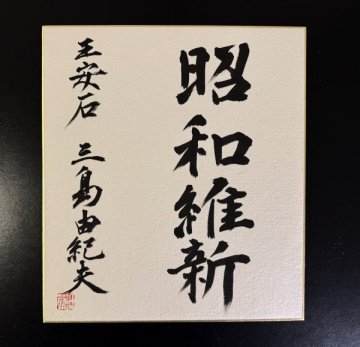 昭和維新
王安石 三島由紀夫